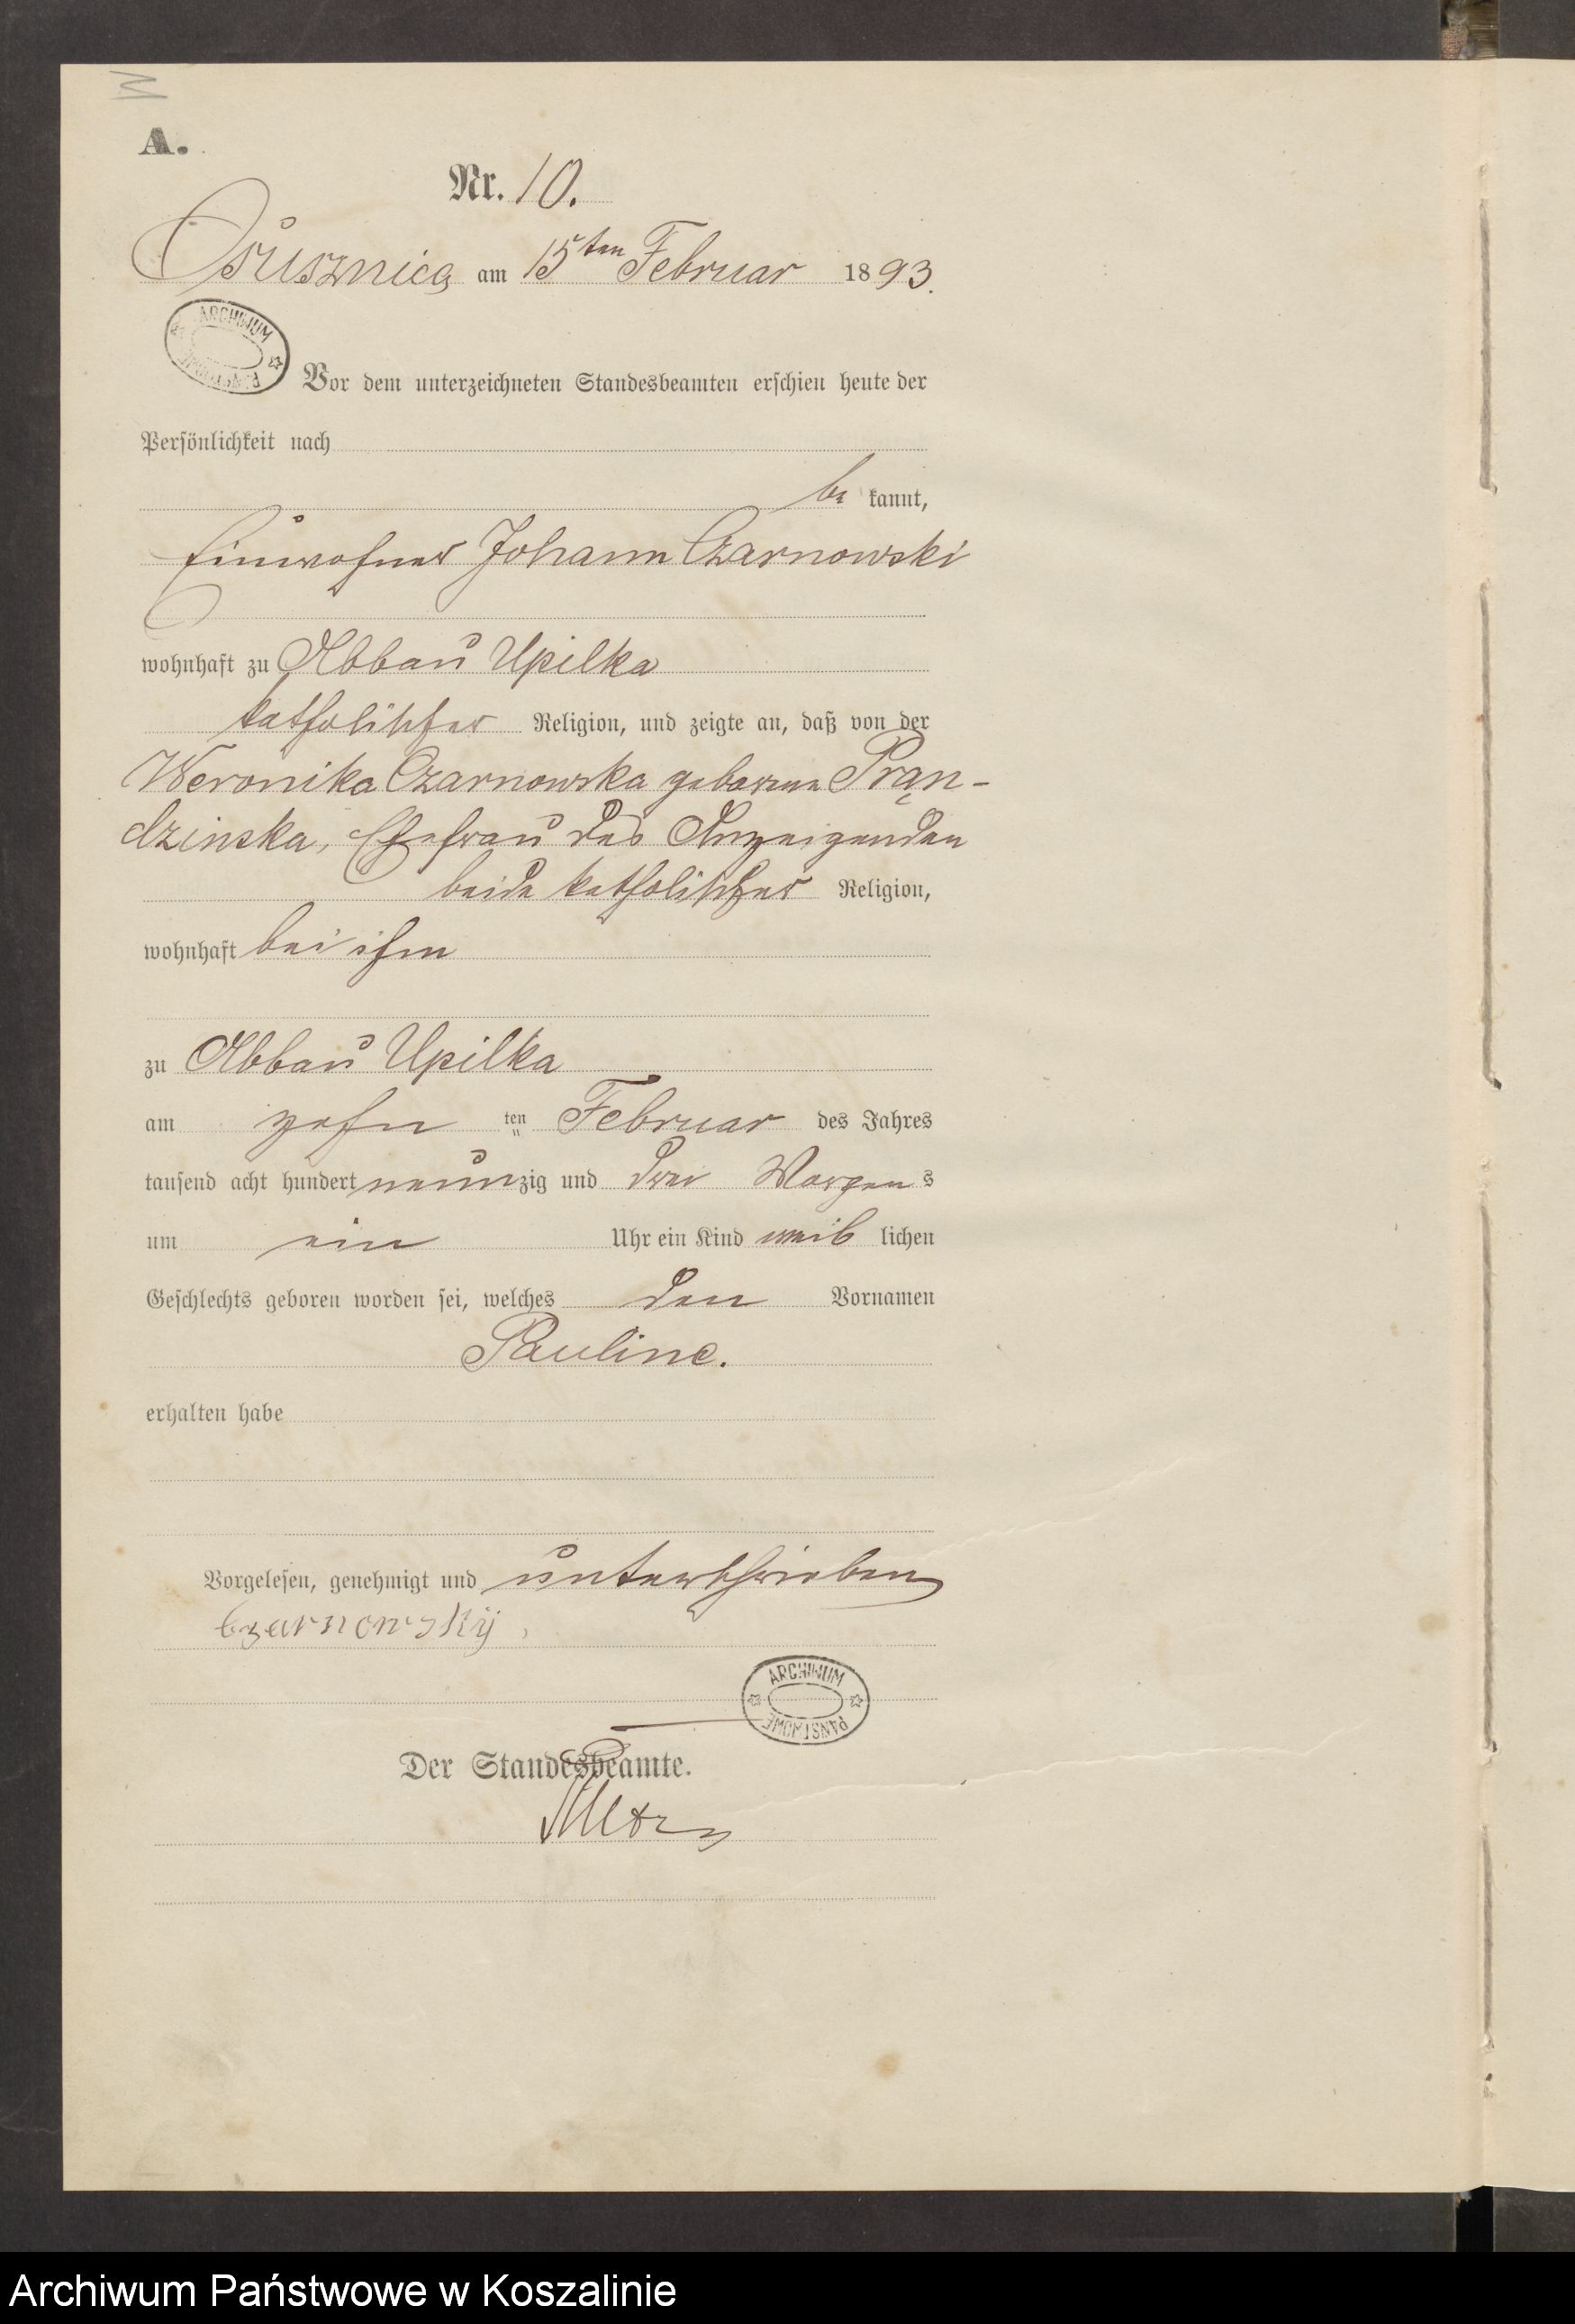 A.
Nr. 10.
Osusznica am 15ten Februar 1893.
ARCHIWUM PAŃSTWOWE
Vor dem unterzeichneten Standesbeamten erschien heute der
Persönlichkeit nach
be kannt,
Einwohner Johann Czarnowski
wohnhaft zu Abbau Upilka
katholischer Religion, und zeigte an, daß von der
Weronika Czarnowska geborene Prąn-
dzinska, Ehefrau des Anzeigenden
beide katholischer Religion,
wohnhaft bei ihm
zu Abbau Upilka
am zehn ten Februar des Jahres
tausend acht hundert neunzig und drei Morgens
um ein Uhr ein Kind weib lichen
Geschlechts geboren worden sei, welches den Vornamen
Pauline.
erhalten habe
Vorgelesen, genehmigt und unterschrieben
Czarnowskij
ARCHIWUM PAŃSTWOWE
Der Standesbeamte.
Archiwum Państwowe w Koszalinie